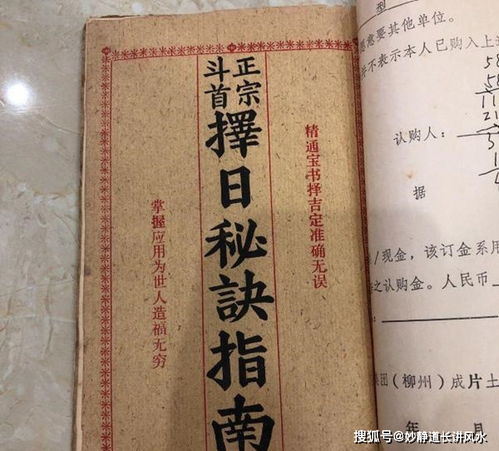 正宗
斗首
擇日秘訣指南
精通宝书择吉定准确无误
掌握应用为世人造福无穷
型
愿意要其他单位。
不表示本人已购入上
认购人：
据
/现金，该订金系用
之认购金。人民币
集团（柳州）成片土
年 月
搜狐号@妙静道长讲风水